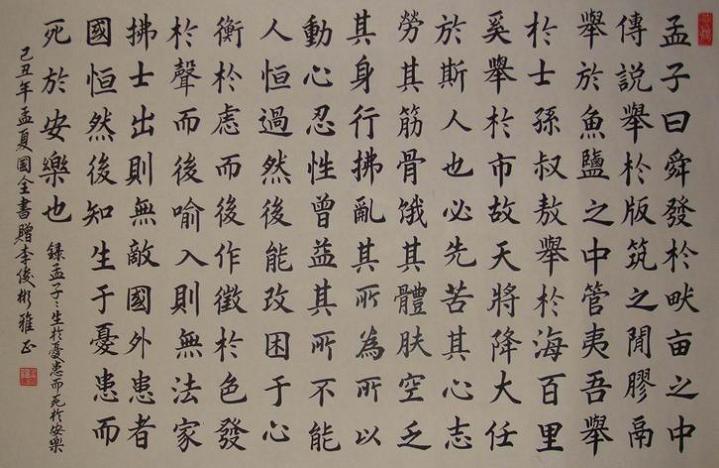 孟子曰舜發於畎亩之中
傳説舉於版筑之閒膠鬲
舉於魚鹽之中管夷吾舉
於士孫叔敖舉於海百里
奚舉於市故天將降大任
於斯人也必先苦其心志
勞其筋骨饿其體肤空乏
其身行拂亂其所為所以
動心忍性曾益其所不能
人恒過然後能改困于心
衡於虑而後作徵於色發
於聲而後喻入則無法家
拂士出則無敵國外患者
國恒然後知生于憂患而
死於安樂也
錄孟子:生於憂患而死於安樂
己丑年孟夏國全書贈李俊彬雅正